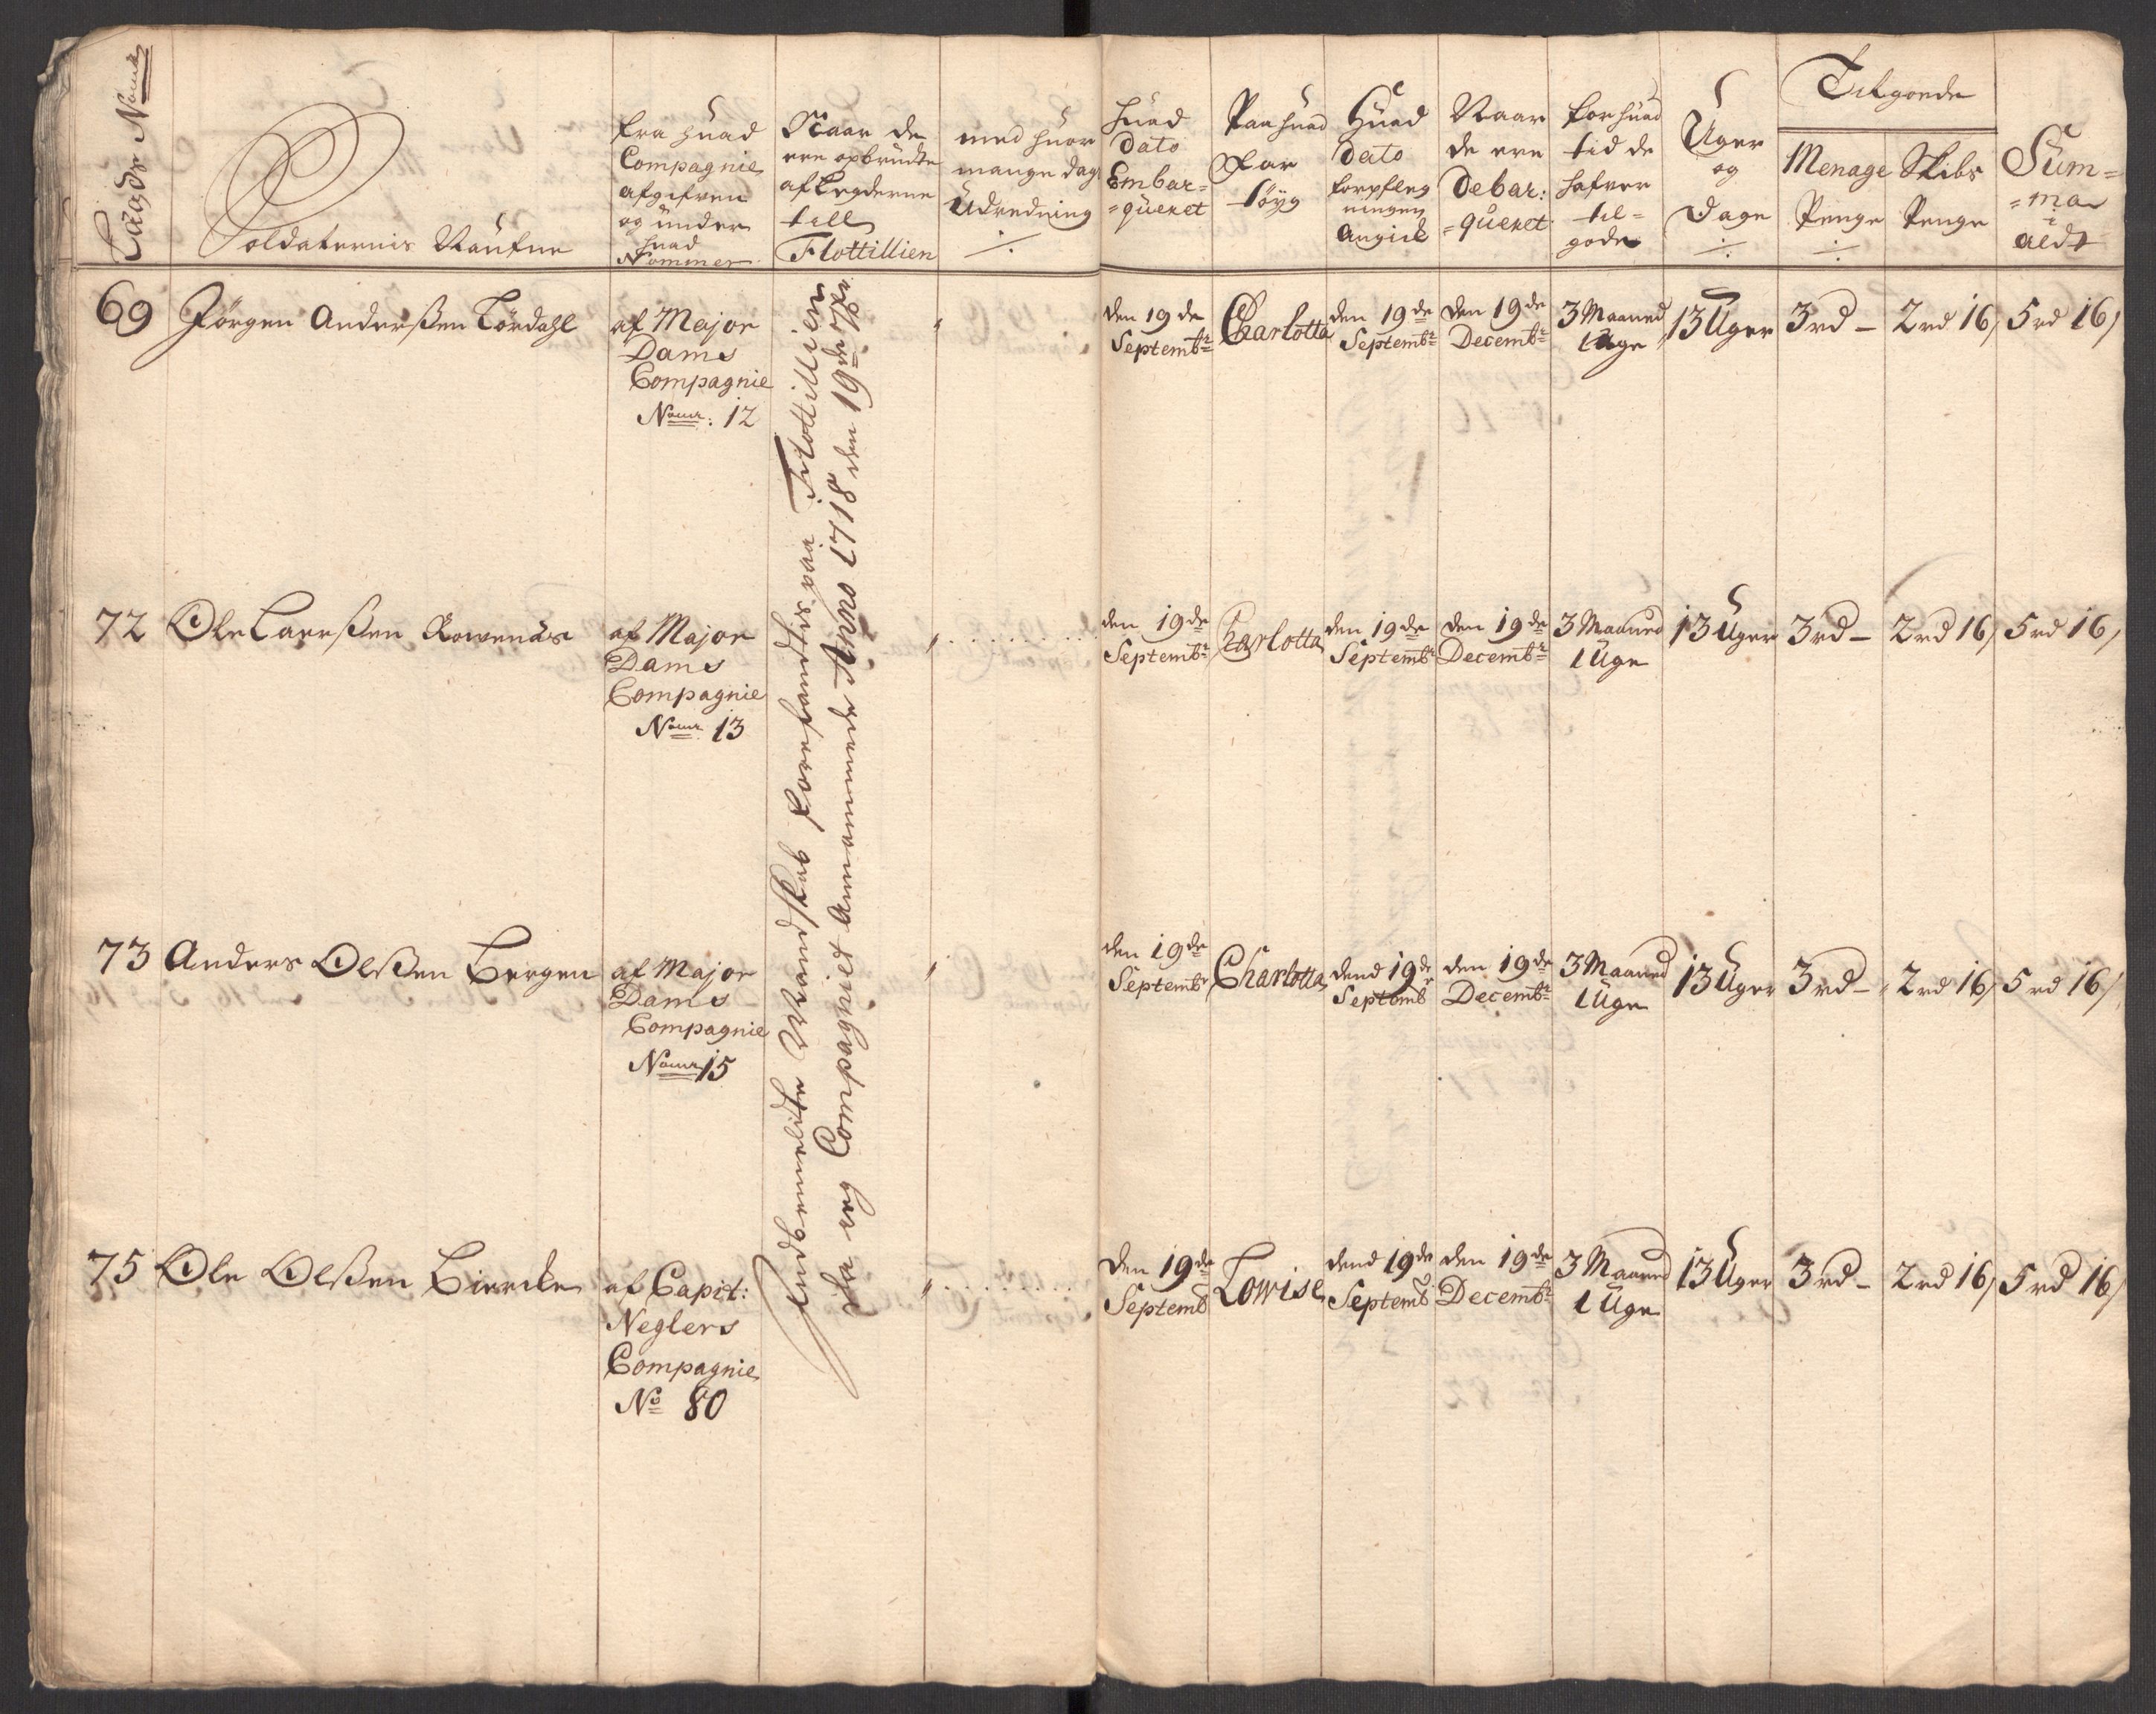 Laugds Nomr
Soldaternis Naufne
fra huad
Compagnie
afgifven
og under
huad
Nommer
Naar de
ere opbrudte
af Legderne
till
Flottillien
med huor
mange dag
Udredning
huad
Dato
Embar=
=queret
Paa huad
Far
tøyg
Huad
Dato
forpfleg
ningen
Angick
Naar
de ere
Debar:
=queret
for huad
tid de
hafver
til=
gode
Uger
og
Dage
Tilgoede
Menage
Penge
Skibs
Penge
Sum=
=ma
aldt
69 Jørgen Anderßen Lørdahl
af Major
Dams
Compagnie
Nomr: 12
den 19de
Septembr
Charlotta
den 19de
Septembr
den 19de
Decembr
3 Maaned
1 Uge
13 Uger
3rd – 2rd 16/ 5rd 16/
72 Ole Larßen
af Major
Dams
Compagnie
Nomr 13
den 19de
Septembr
Charlotta
den 19de
Septembr
den 19de
Decembr
3 Maaned
1 Uge
13 Uger
3rd – 2rd 16/ 5rd 16/
73 Anders Olßen Bergen
af Major
Dams
Compagnie
Nomr 15
den 19de
Septembr
Charlotta
dend 19de
Septembr
den 19de
Decembr
3 Maaned
1 Uge
13 Uger
3rd – 2rd 16/ 5rd 16/
75 Ole Olßen
af Capit:
Neglers
Compagnie
No 80
den 19de
Septemb
Lowise
dend 19de
Septemb
den 19de
Decembr
3 Maaned
1 Uge
13 Uger
3rd – 2rd 16/ 5rd 16/
Mandskab forefandtis paa Flottillien
Da ieg Compagniet Annammede Anno 1718 den 19de 7br